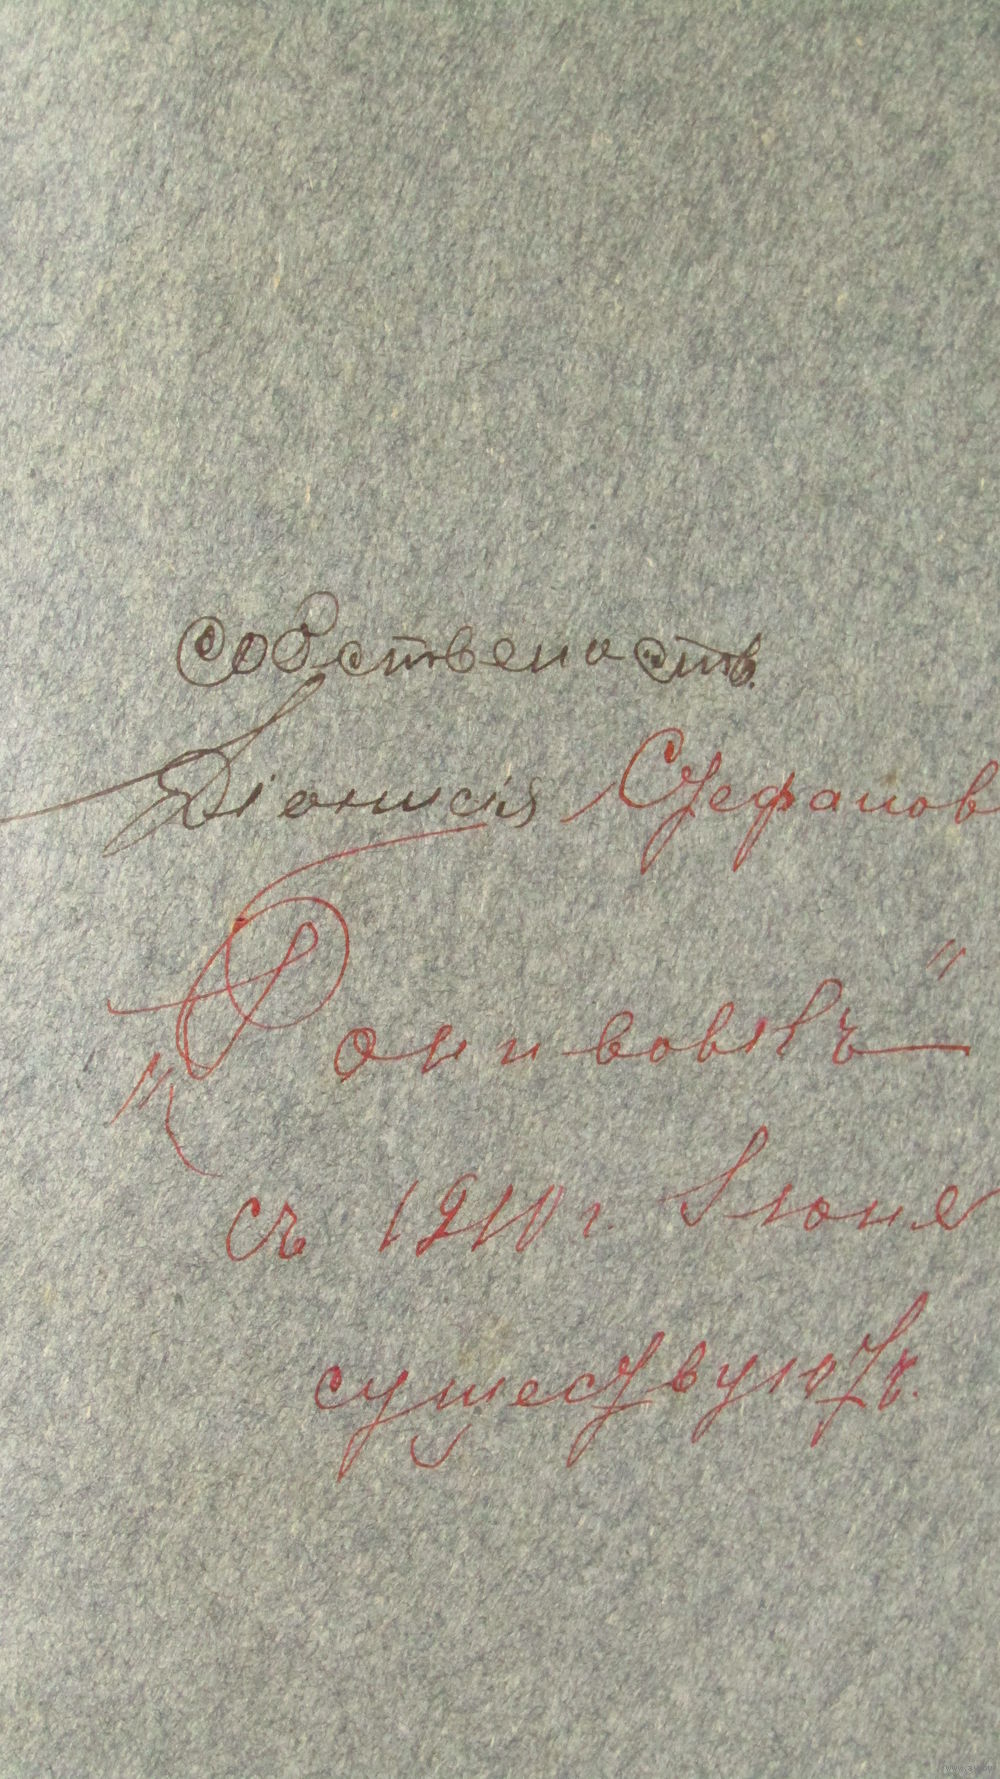 собственость.
Діонисія Стефанов
съ 1910 г. Іюне
существуютъ.